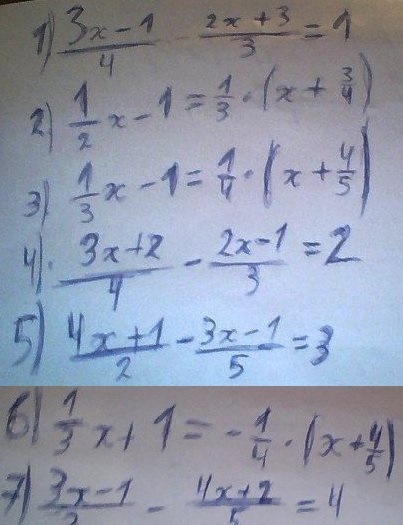 1) (3x-1)/4 (2x+3)/3 = 1
2) 1/2 x - 1 = 1/3 · (x + 3/4)
3) 1/3 x - 1 = 1/4 · (x + 4/5)
4) · (3x+2)/4 - (2x-1)/3 = 2
5) (4x+1)/2 - (3x-1)/5 = 3
6) 1/3 x + 1 = - 1/4 · (x + 4/5)
7) 3x-1 - 4x+2 = 4